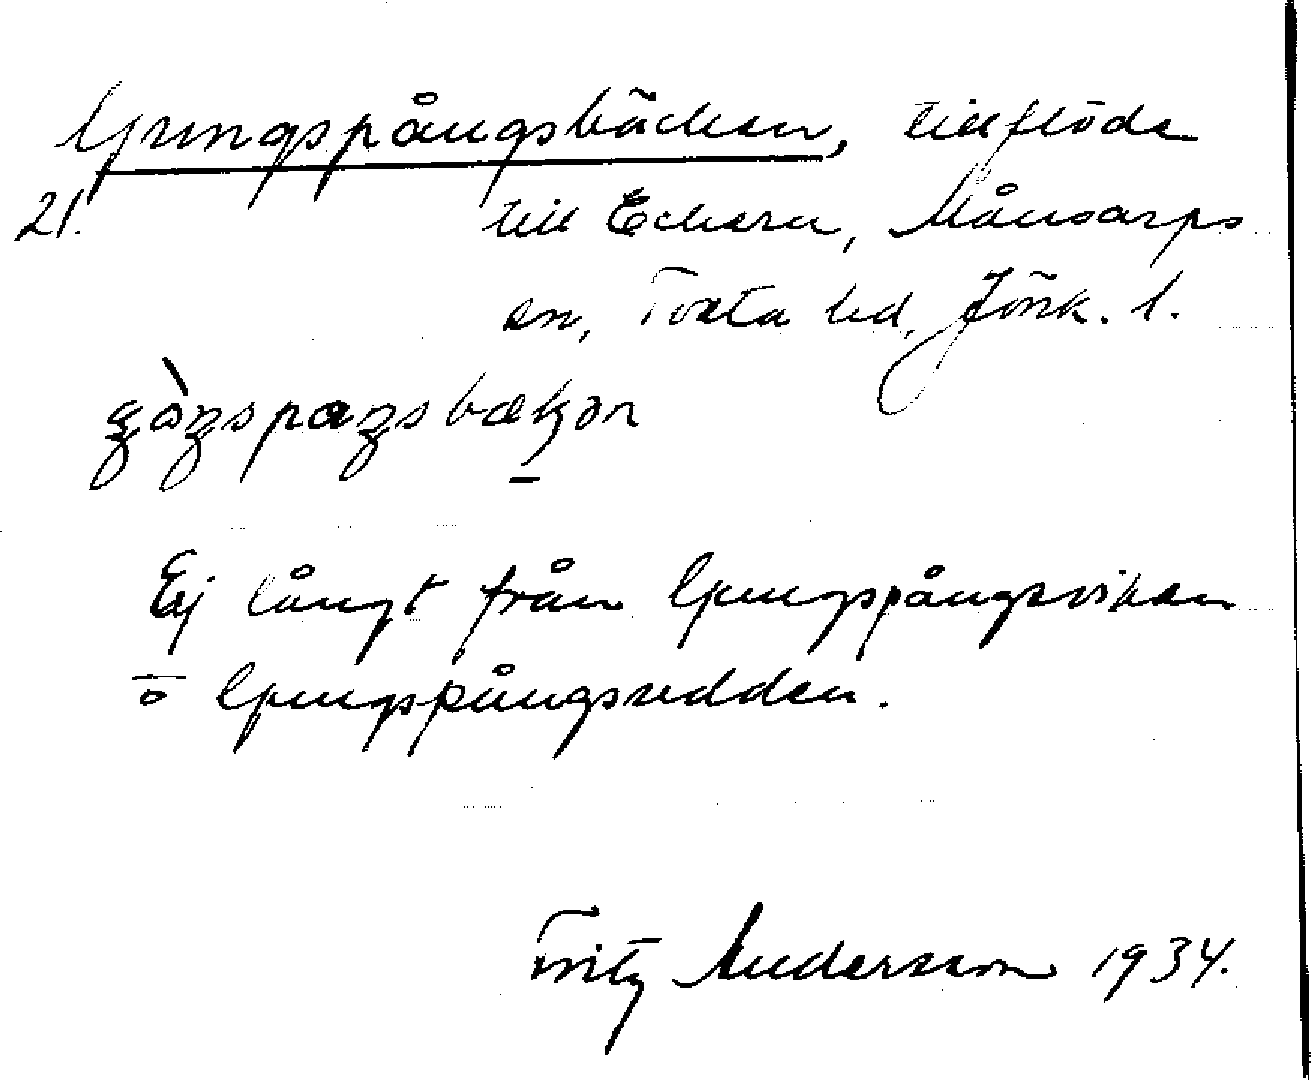 Ljungspångsbäcken, tillflöde
21. till Eckern, Månsarps
sn, Tveta hd, Jönk. l.
Ej långt från Ljungspångsviken
o Ljungspångsudden.
Fritz Andersson 1934.